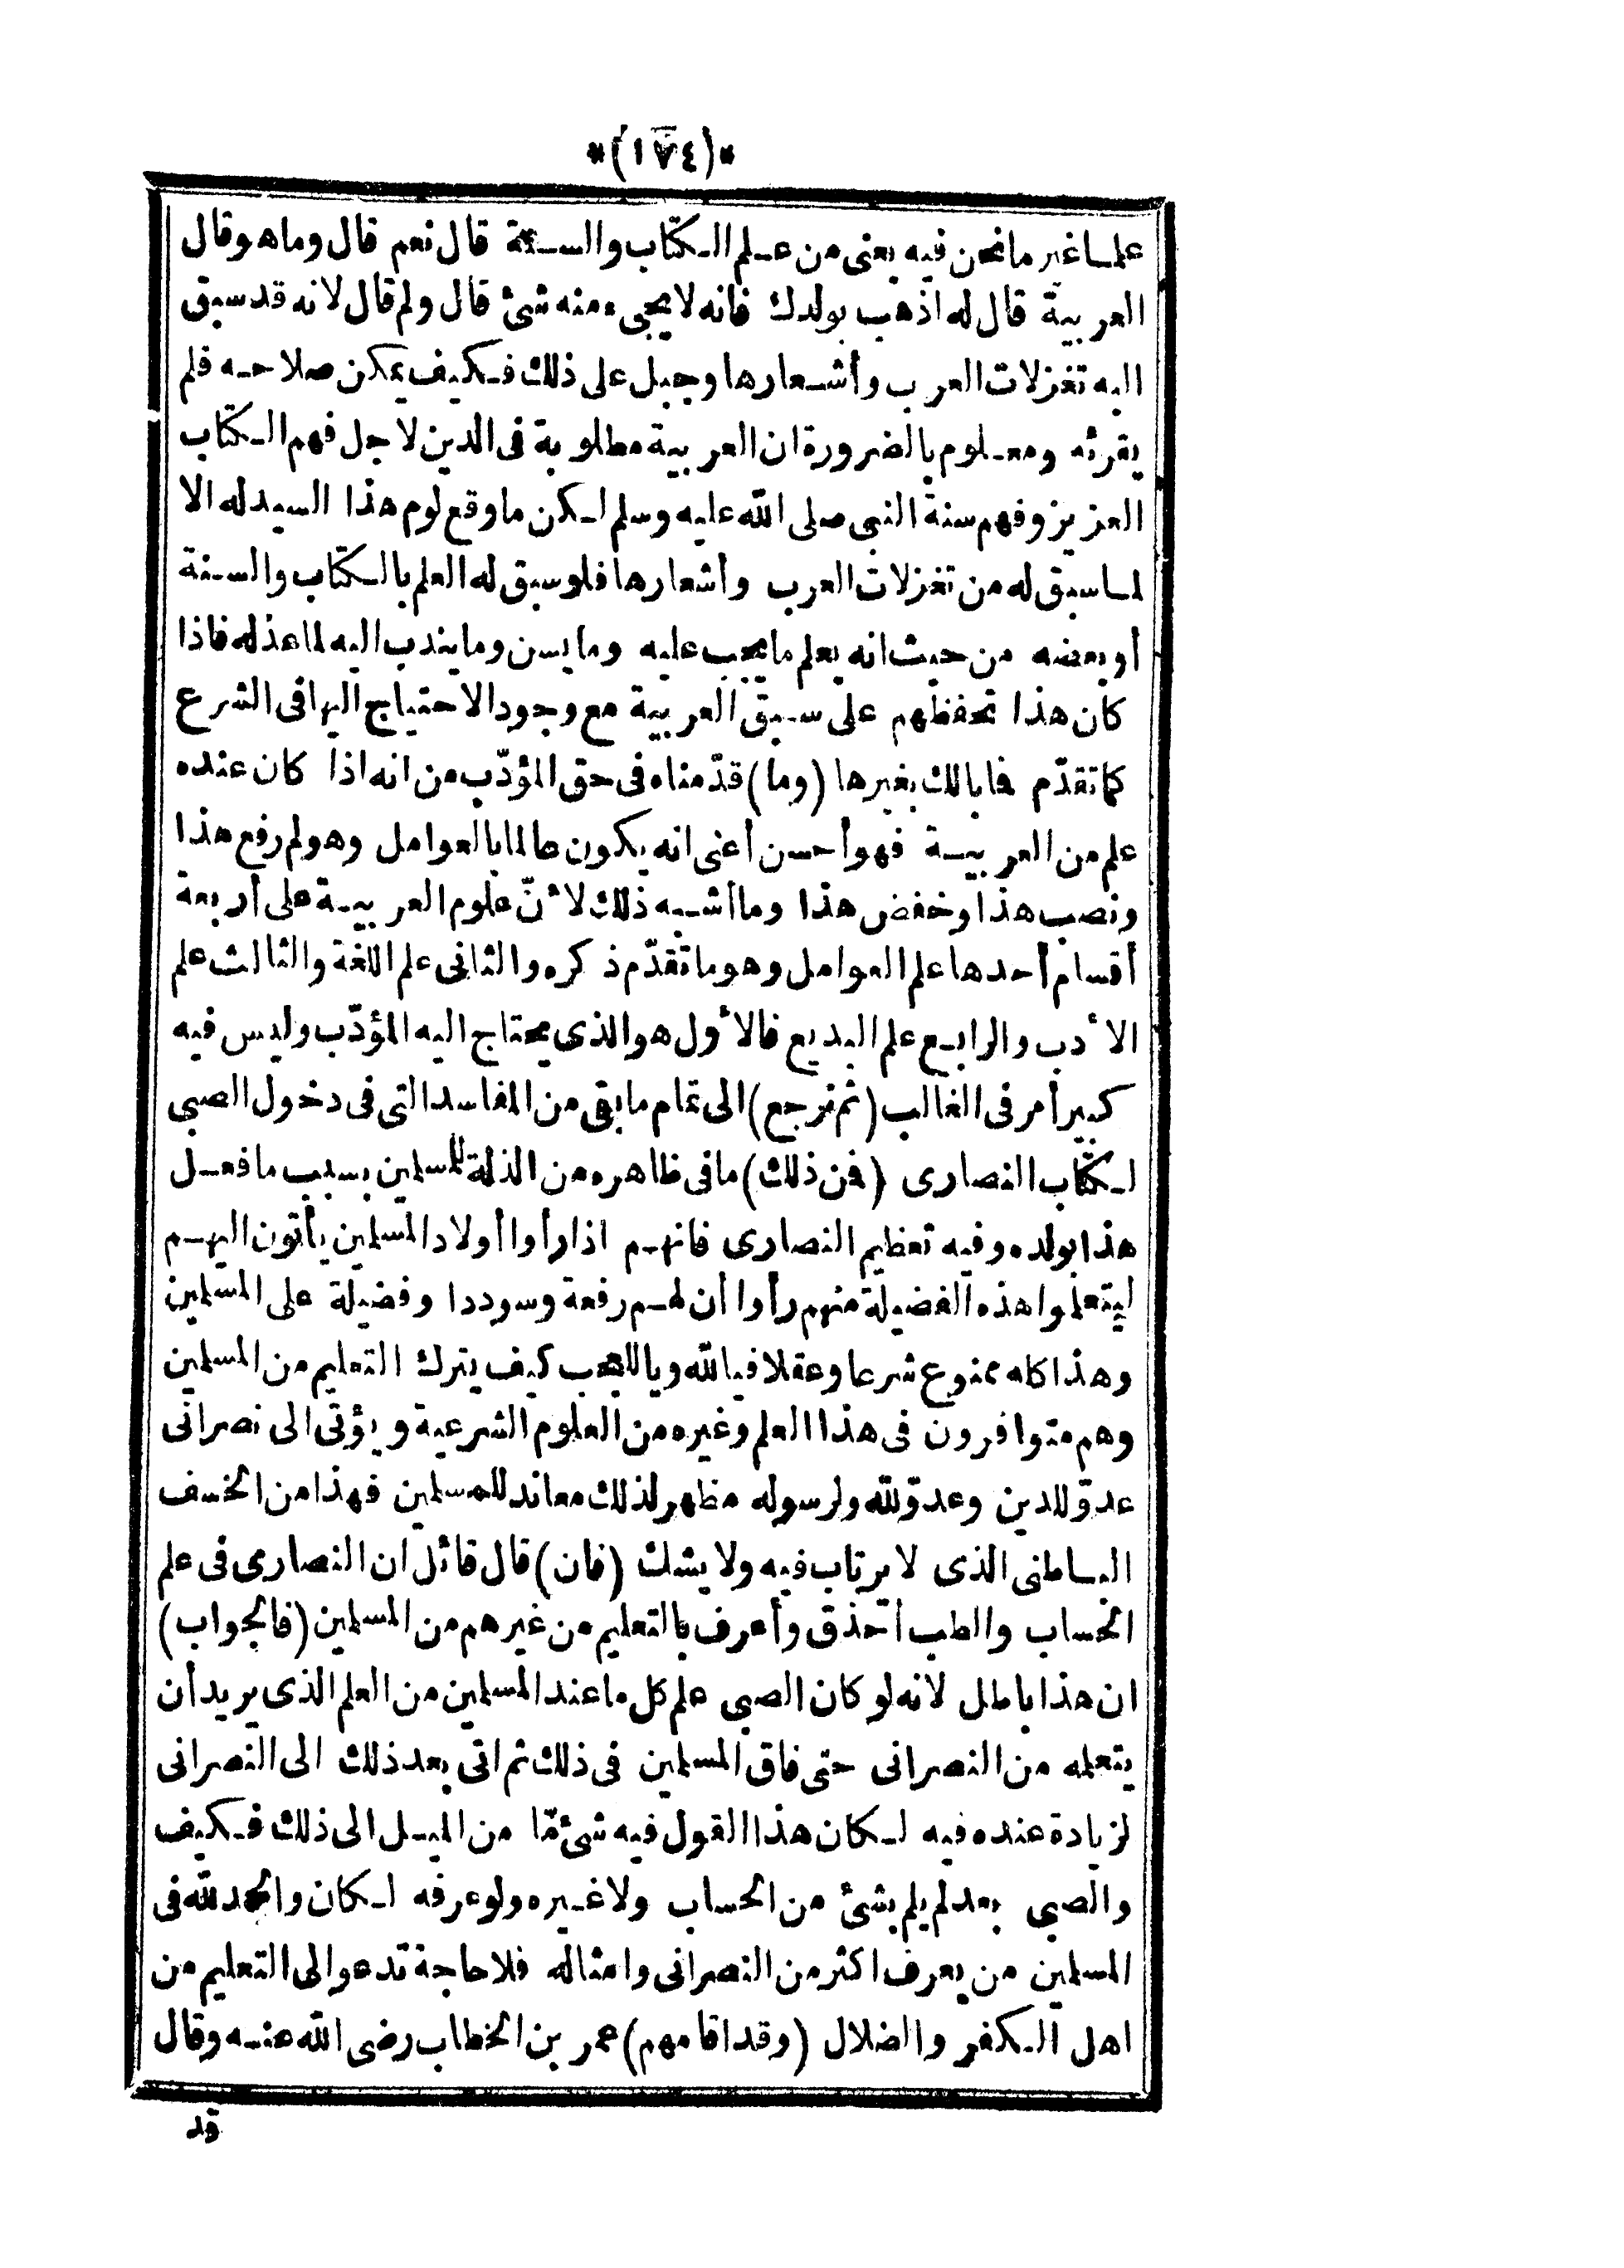 *(١٧٤)*
علما غير ما نحن فيه يعنى من علم الكتاب والسنة قال نعم قال وما هو قال
العربية قال له اذهب بولدك فانه لا يجىء منه شئ قال ولم قال لانه قد سبق
اليه تغزلات العرب وأشعارها وجبل على ذلك فكيف يمكن صلاحه فلم
يقرئه ومعلوم بالضرورة ان العربية مطلوبة فى الدين لاجل فهم الكتاب
العزيز وفهم سنة النبى صلى الله عليه وسلم لكن ما وقع لوم هذا السيد له الا
لما سبق له من تغزلات العرب وأشعارها فلو سبق له العلم بالكتاب والسنة
أو بعضه من حيث انه يعلم ما يجب عليه وما يسن وما يندب اليه لما عذله فاذا
كان هذا تحفظهم على سبق العربية مع وجود الاحتياج اليها فى الشرع
كما تقدّم فما بالك بغيرها (وما) قدّمناه فى حق المؤدّب من انه اذا كان عنده
علم من العربية فهو أحسن أعنى انه يكون عالما بالعوامل وهو لم رفع هذا
ونصب هذا وخفض هذا وما أشبه ذلك لأنّ علوم العربية على أربعة
أقسام أحدها علم العوامل وهو ما تقدّم ذكره والثانى علم اللغة والثالث علم
الأدب والرابع علم البديع فالأول هو الذى يحتاج اليه المؤدّب وليس فيه
كبير أمر فى الغالب (ثم نرجع) الى تمام ما بقى من المفاسد التى فى دخول الصبى
لكتّاب النصارى (فمن ذلك) ما فى ظاهره من الذلة للمسلمين بسبب ما فعل
هذا بولده وفيه تعظيم النصارى فانهم اذا رأوا أولاد المسلمين يأتون اليهم
ليتعلموا هذه الفضيلة منهم رأوا أن لهم رفعة وسوددا وفضيلة على المسلمين
وهذا كله ممنوع شرعا وعقلا فيالله وياللعجب كيف يترك التعليم من المسلمين
وهم متوافرون فى هذا العلم وغيره من العلوم الشرعية ويؤتى الى نصرانى
عدوّ للدين وعدوّ لله ولرسوله مظهر لذلك معاند للمسلمين فهذا من الخسف
الباطنى الذى لا يرتاب فيه ولا يشك (فان) قال قائل ان النصارى فى علم
الحساب والطب أحذق وأعرف بالتعليم من غيرهم من المسلمين (فالجواب)
ان هذا باطل لانه لو كان الصبى علم كل ما عند المسلمين من العلم الذى يريد أن
يتعلمه من النصرانى حتى فاق المسلمين فى ذلك ثم اتى بعد ذلك الى النصرانى
لزيادة عنده فيه لكان هذا القول فيه شئ مّا من الميل الى ذلك فكيف
والصبى بعد لم يلم بشئ من الحساب ولا غيره ولو عرفه لكان والحمد لله فى
المسلمين من يعرف اكثر من النصرانى وامثاله فلا حاجة تدعو الى التعليم من
اهل الكفر والضلال (وقد اقامهم) عمر بن الخطاب رضى الله عنه وقال
قد